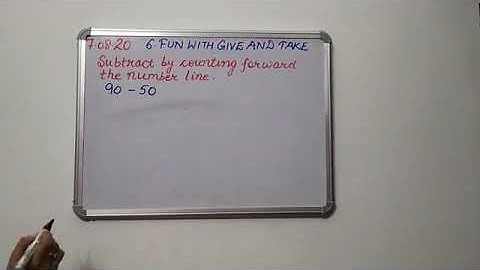 7.08.20 6. FUN WITH GIVE AND TAKE
Subtract by counting forward
the number line.
90 - 50